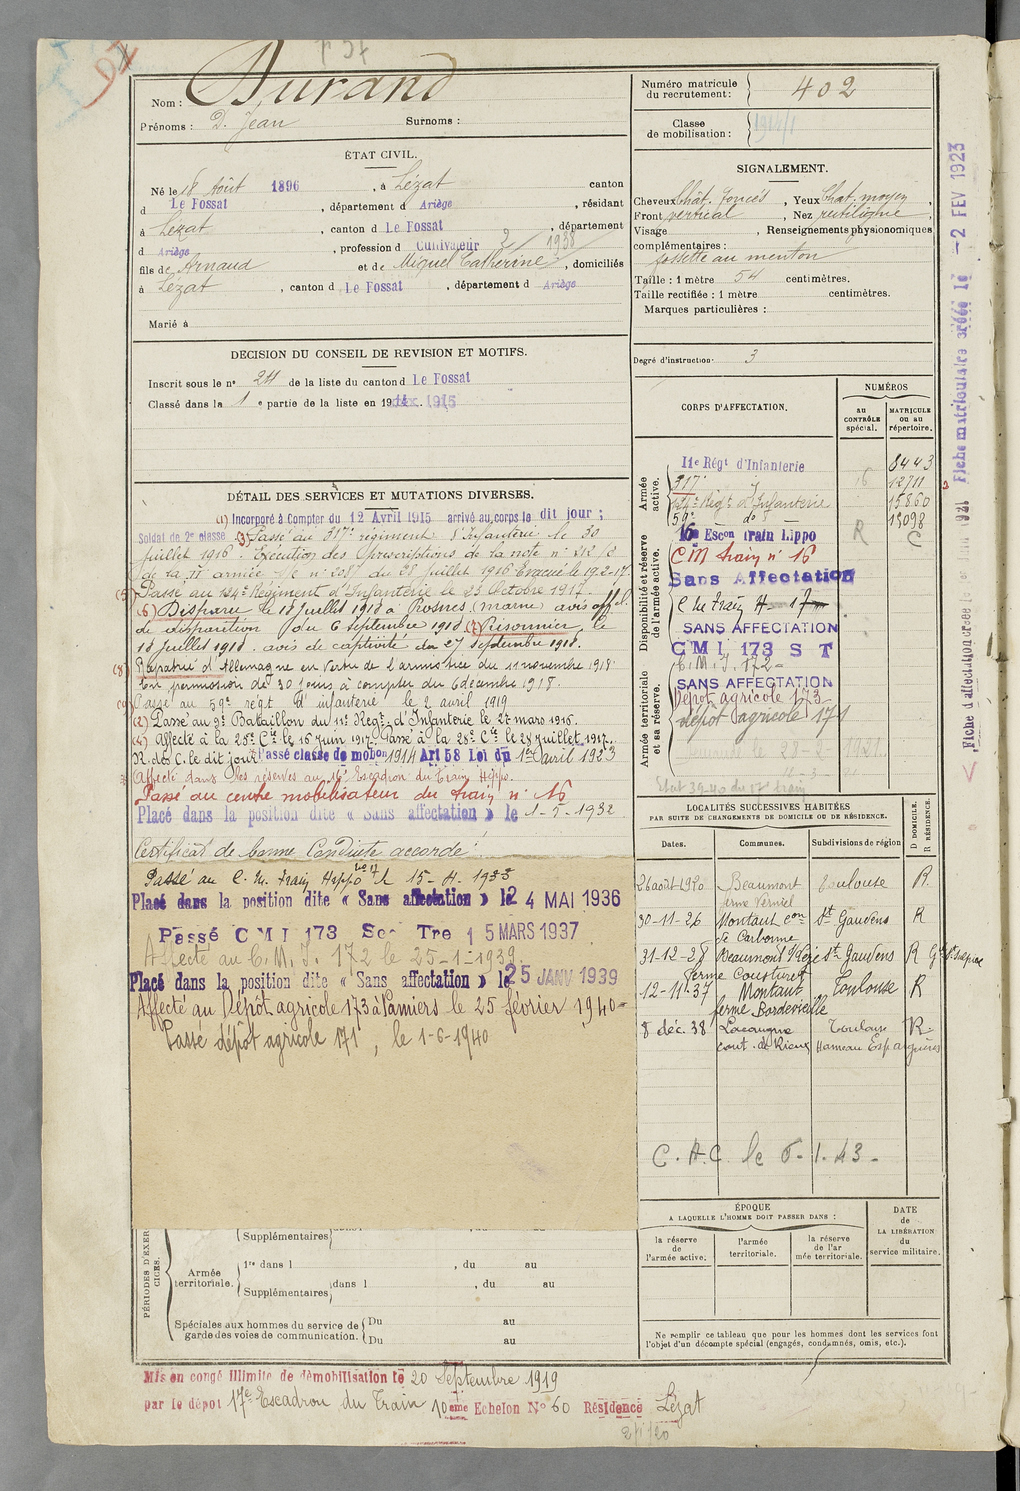 Nom : Durand
Prénoms : D. Jean Surnoms :
ÉTAT CIVIL.
Né le 18 Août 1896, à Lézat canton
d Le Fossat, département d Ariège, résidant
à Lézat, canton d Le Fossat, département
d Ariège, profession d Cultivateur
fils de Arnaud et de Miguel Catherine, domiciliés
à Lézat, canton d Le Fossat, département d Ariège
Marié à
DECISION DU CONSEIL DE REVISION ET MOTIFS.
Inscrit sous le nº 24 de la liste du canton d Le Fossat
Classé dans la 1 e partie de la liste en 19 1915
DÉTAIL DES SERVICES ET MUTATIONS DIVERSES.
(1) Incorporé à Compter du 12 Avril 1915 arrivé au corps le dit jour ;
Soldat de 2e classe (3) Passé au 317e régiment d'Infanterie le 30
juillet 1916. Exécution des prescriptions de la note nº 212/3
de la IIe armée du 28 juillet 1916 Evacué le 19.2.17.
(5) Passé au 124e Régiment d'Infanterie le 23 Octobre 1917.
(6) Disparu le 18 juillet 1918 à Rosnes (marne) avis offel
de disparition du 6 septembre 1918. (7) Prisonnier le
18 juillet 1918. avis de captivité du 27 septembre 1918.
(8) Rapatrié d'Allemagne en vertu de l'armistice du 11 novembre 1918.
En permission de 30 jours à compter du 6 décembre 1918.
Passé au 59e régt d'infanterie le 2 avril 1919
(2) Passé au 9e Bataillon du 11e Régt d'Infanterie le 27 mars 1916.
(4) Affecté à la 25e Cie le 16 juin 1917. Passé à la 28e Cie le 28 juillet 1917.
R. des C. le dit jour Passé classe de mobon 1914 Art 58 Loi du 1er avril 1923
Affecté dans les réserves au 16e Escadron du Train Hippo.
Passé au centre mobilisateur du train nº 16
Placé dans la position dite « Sans affectation » le 1-5-1932
Certificat de bonne Conduite accordé.
Passé au C. M. Train Hippo nº 17 le 15-4-1933
Placé dans la position dite « Sans affectation » le 24 MAI 1936
Passé CMI 173 Sor Tre 15 MARS 1937
Affecté au C. M. I. 172 le 25-1-1939
Placé dans la position dite « Sans affectation » le 25 JANV 1939
Affecté au Dépôt agricole 173 à Pamiers le 25 février 1940
Passé dépôt agricole 171, le 1-6-1940
PÉRIODES D'EXERCICES.
Supplémentaires
Armée territoriale.
1re dans l , du au
Supplémentaires dans l , du au
Spéciales aux hommes du service de garde des voies de communication.
Du au
Du au
Mis en congé illimité de démobilisation le 20 Septembre 1919
par le dépôt 17e Escadron du Train 10ème Echelon Nº 60 Résidence Lézat
Numéro matricule du recrutement : 402
Classe de mobilisation :
SIGNALEMENT.
Cheveux Chât. foncés, Yeux Chat. moyen,
Front vertical, Nez rectiligne,
Visage , Renseignements physionomiques
complémentaires :
fossette au menton
Taille : 1 mètre 54 centimètres.
Taille rectifiée : 1 mètre centimètres.
Marques particulières :
Degré d'instruction 3
CORPS D'AFFECTATION.
NUMÉROS
au CONTRÔLE spécial.
MATRICULE ou au répertoire.
Armée active.
11e Régt d'Infanterie 8443
317e 12711
124e Régt d'Infanterie 15860
59e do 13098
Disponibilité et réserve de l'armée active.
16e Escon train Hippo R C
CM train nº 16
Sans Affectation
C M Train H 17
SANS AFFECTATION
CMI 173 S T
C. M. I. 172
Armée territoriale et sa réserve.
SANS AFFECTATION
Dépôt agricole 173
dépôt agricole 171
LOCALITÉS SUCCESSIVES HABITÉES
PAR SUITE DE CHANGEMENTS DE DOMICILE OU DE RÉSIDENCE.
Dates. Communes. Subdivisions de région D DOMICILE. R RÉSIDENCE.
26 août 1920 Beaumont Toulouse R.
30-11-26 Montaut con St Gaudens R
de Carbonne
31-12-28 Beaumont s/Lèze St Gaudens R
ferme Cousturet
12-11-37 Montaut Toulouse R
ferme Bordevieille
8 déc. 38 Lacaugne Toulouse R
cant. de Rieux Hameau Espanguères
C. A. C. le 6-1-43
ÉPOQUE
A LAQUELLE L'HOMME DOIT PASSER DANS :
DATE de LA LIBÉRATION du service militaire.
la réserve de l'armée active.
l'armée territoriale.
la réserve de l'armée territoriale.
Ne remplir ce tableau que pour les hommes dont les services font
l'objet d'un décompte spécial (engagés, condamnés, omis, etc.).
Fiche matriculaire créée le -2 FEV 1923
Fiche d'affectation créée le